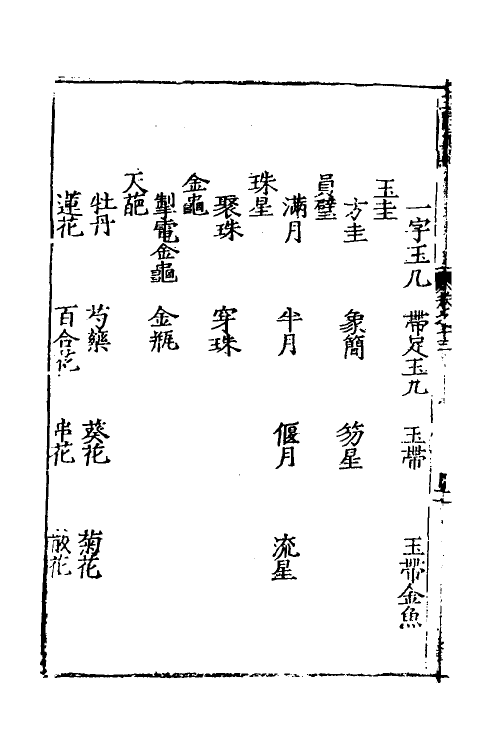 一字玉几 帶定玉九 玉帶 玉帶金魚
玉圭
方圭 象簡 笏星
員璧
滿月 半月 偃月 流星
珠星
聚珠 穿珠
金龜
掣電金龜 金瓶
天葩
牡丹 芍藥 葵花 菊花
蓮花 百合花 串花 散花